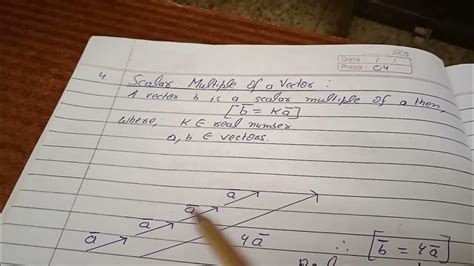 Date: / /
Page: 04
4 Scalar Multiple of a Vector:
A vector b is a scalar multiple of a then,
[b̅ = Ka̅]
where, K ∈ real number
a, b ∈ vectors.
a̅
a̅
a̅
a̅
4a̅
∴ [b̅ = 4a̅]